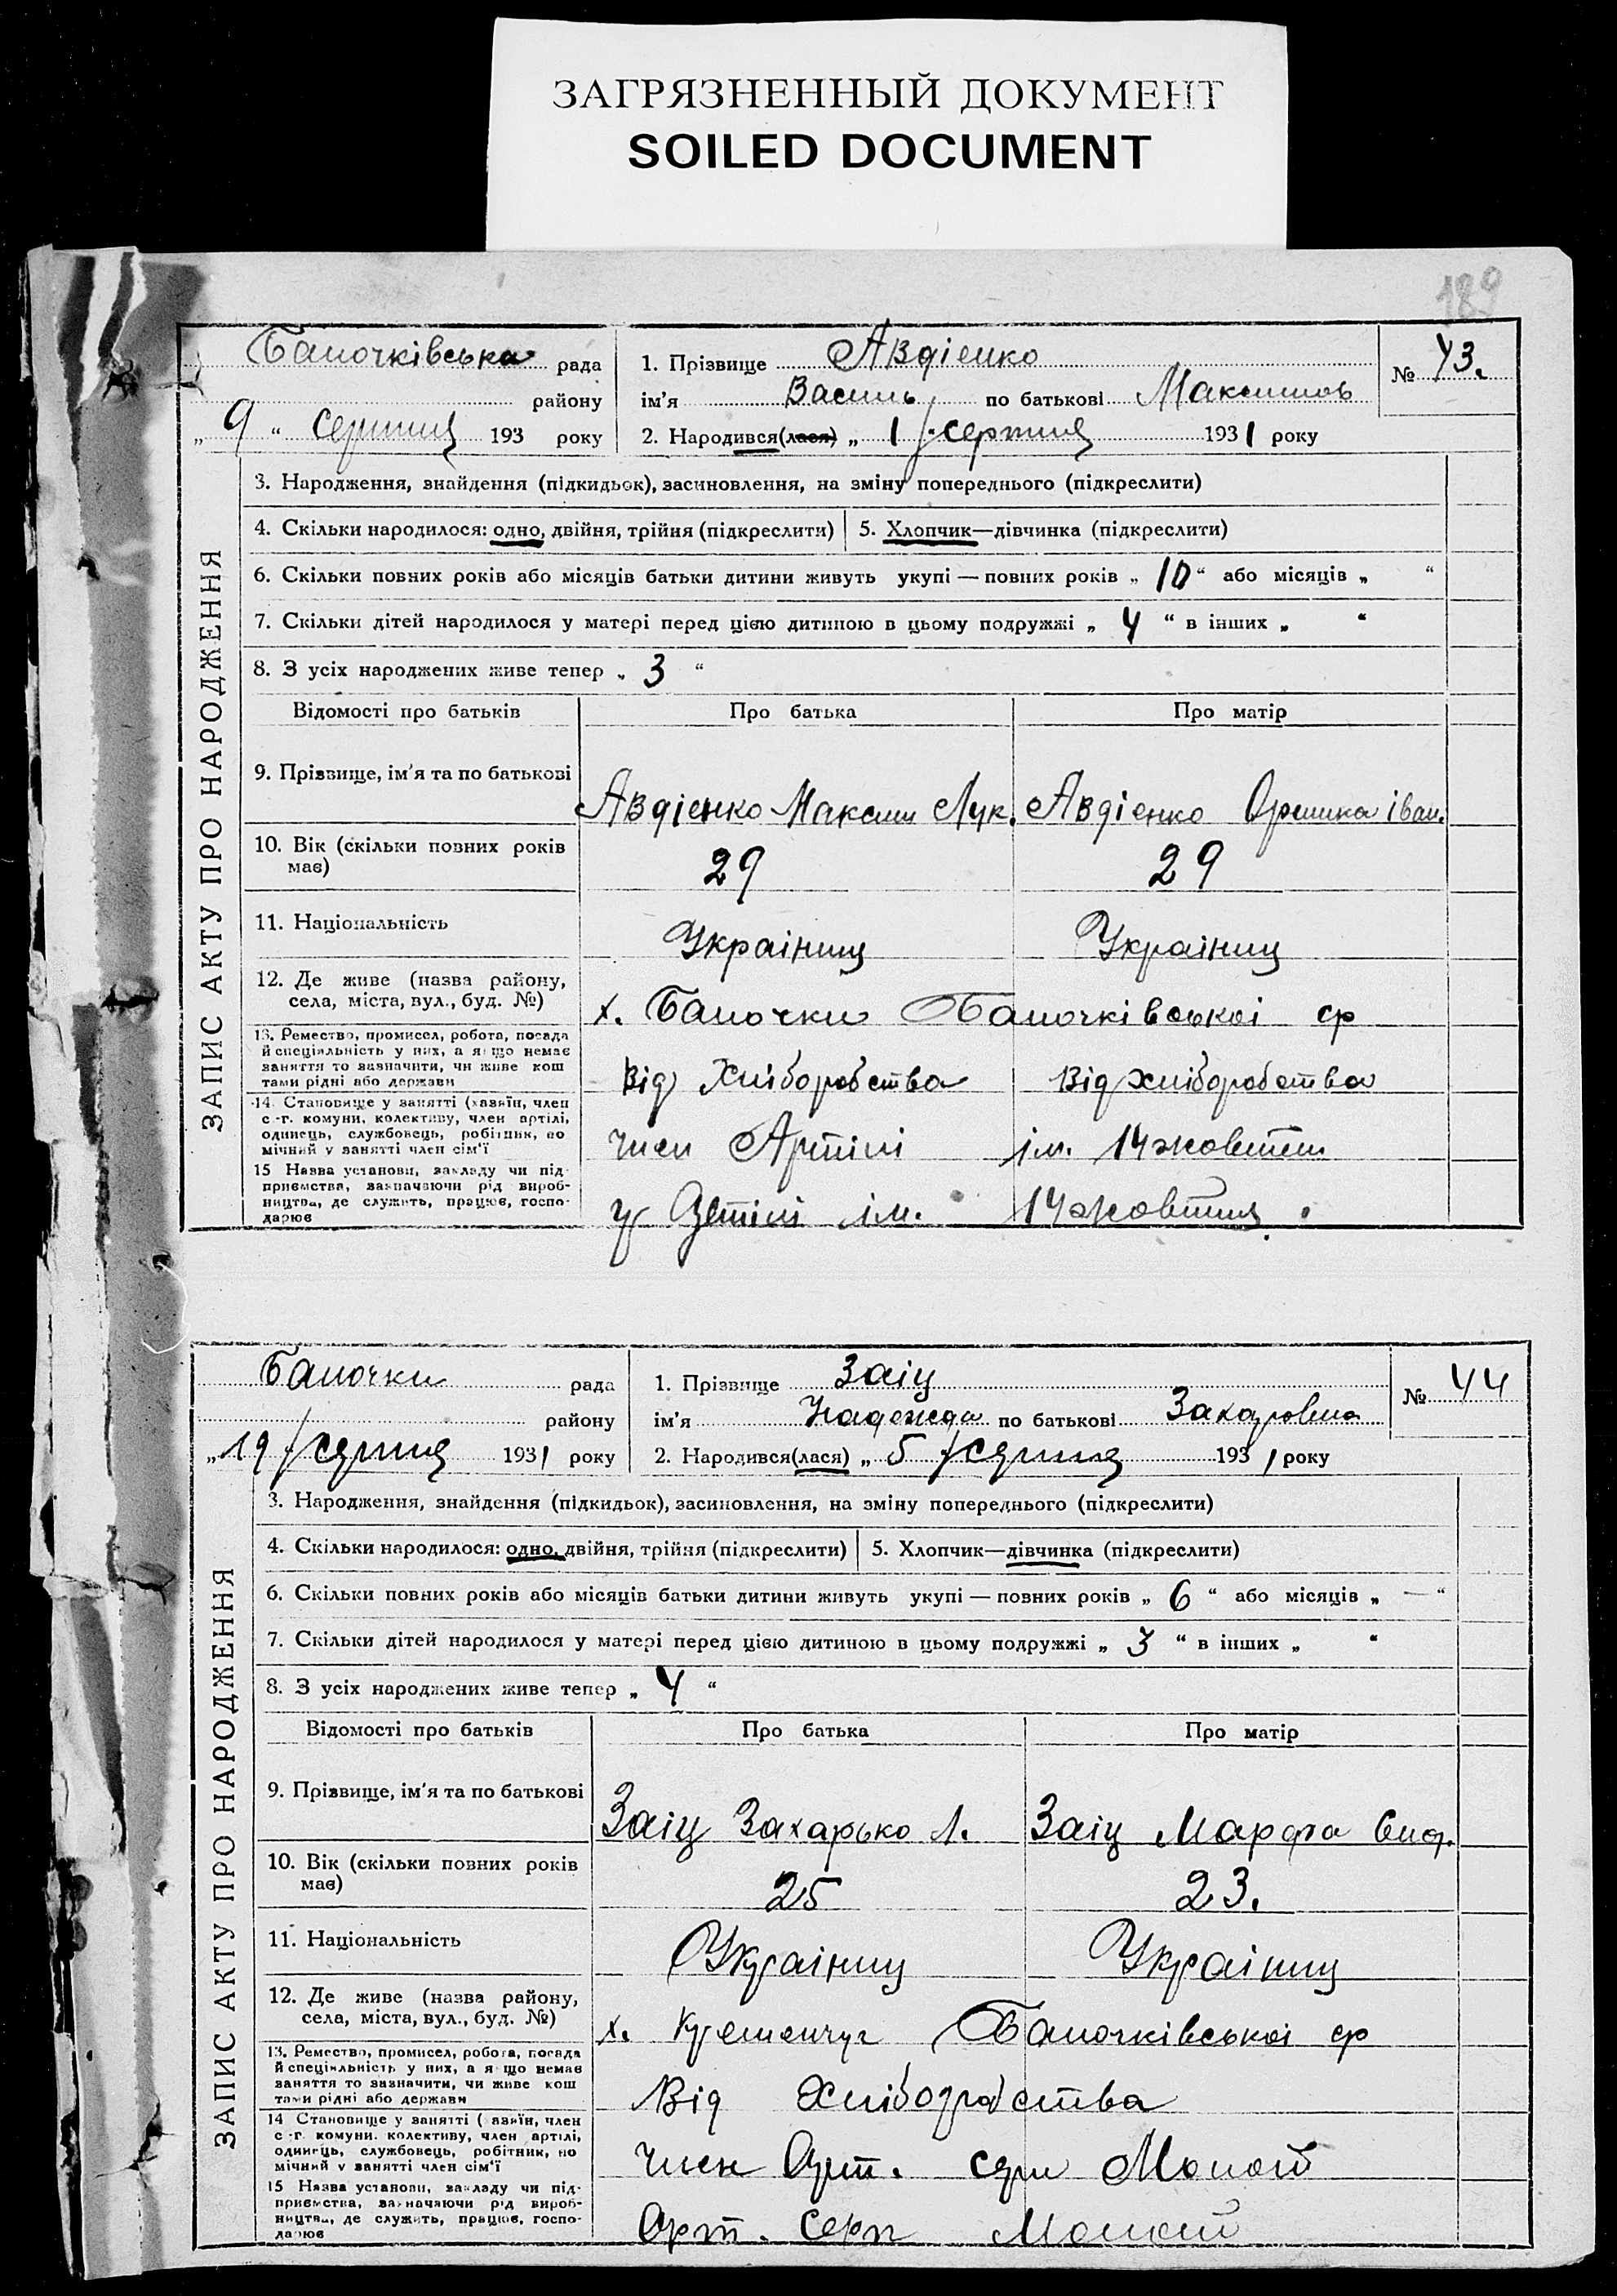 ЗАГРЯЗНЕННЫЙ ДОКУМЕНТ
SOILED DOCUMENT
189
Баночківська рада
району
„ 9 “ серпня 193 року
1. Прізвище Авдіенко
ім'я Василь по батькові Максимов
2. Народився(лася) „ 1 “ серпня 1931 року
№ 43.
ЗАПИС АКТУ ПРО НАРОДЖЕННЯ
3. Народження, знайдення (підкидьок), засиновлення, на зміну попереднього (підкреслити)
4. Скільки народилося: одно, двійня, трійня (підкреслити) 5. Хлопчик—дівчинка (підкреслити)
6. Скільки повних років або місяців батьки дитини живуть укупі — повних років „ 10 “ або місяців „ “
7. Скільки дітей народилося у матері перед цією дитиною в цьому подружжі „ 4 “ в інших „ “
8. З усіх народжених живе тепер „ 3 “
Відомості про батьків Про батька Про матір
9. Прізвище, ім'я та по батькові Авдіенко Максим Лук. Авдіенко Оришка іван.
10. Вік (скільки повних років має) 29 29
11. Національність Украіниц Украіниц
12. Де живе (назва району,
села, міста, вул., буд. №) х. Баночки Баночківськоі ср
13. Ремество, промисел, робота, посада
й спеціяльність у них, а якщо немає
заняття то зазначити, чи живе кош
тами рідні або держави
Від Хліборобства Від хліборобства
14. Становище у занятті (хазяїн, член
с.-г. комуни, колективу, член артілі,
одинець, службовець, робітник, по
мічний у занятті член сім'ї
член Артілі ім. 14 жовтня
15 Назва установи, закладу чи під-
приємства, зазначаючи рід вироб-
ництва, де служить, працює, госпо-
дарює
у Артілі ім. 14 жовтня.
Баночки рада
району
„ 19 “ серпня 1931 року
1. Прізвище Заіц
ім'я Надежда по батькові Захаровна
2. Народився(лася) „ 5 “ серпня 1931 року
№ 44
ЗАПИС АКТУ ПРО НАРОДЖЕННЯ
3. Народження, знайдення (підкидьок), засиновлення, на зміну попереднього (підкреслити)
4. Скільки народилося: одно, двійня, трійня (підкреслити) 5. Хлопчик—дівчинка (підкреслити)
6. Скільки повних років або місяців батьки дитини живуть укупі — повних років „ 6 “ або місяців „ — “
7. Скільки дітей народилося у матері перед цією дитиною в цьому подружжі „ 3 “ в інших „ “
8. З усіх народжених живе тепер „ 4 “
Відомості про батьків Про батька Про матір
9. Прізвище, ім'я та по батькові Заіц Захарько Л. Заіц Марфа
10. Вік (скільки повних років має) 25 23.
11. Національність Украіниц Украіниц
12. Де живе (назва району,
села, міста, вул., буд. №) х. Кременчуг Баночківськоі ср
13. Ремество, промисел, робота, посада
й спеціяльність у них, а якщо немає
заняття то зазначити, чи живе кош
тами рідні або держави
Від Хліборобства
14 Становище у занятті (хазяїн, член
с.-г. комуни, колективу, член артілі,
одинець, службовець, робітник, по
мічний у занятті член сім'ї
член Арт. серп Молот
15 Назва установи, закладу чи під-
приємства, зазначаючи рід вироб-
ництва, де служить, працює, госпо-
дарює
Арт. Серп Молот